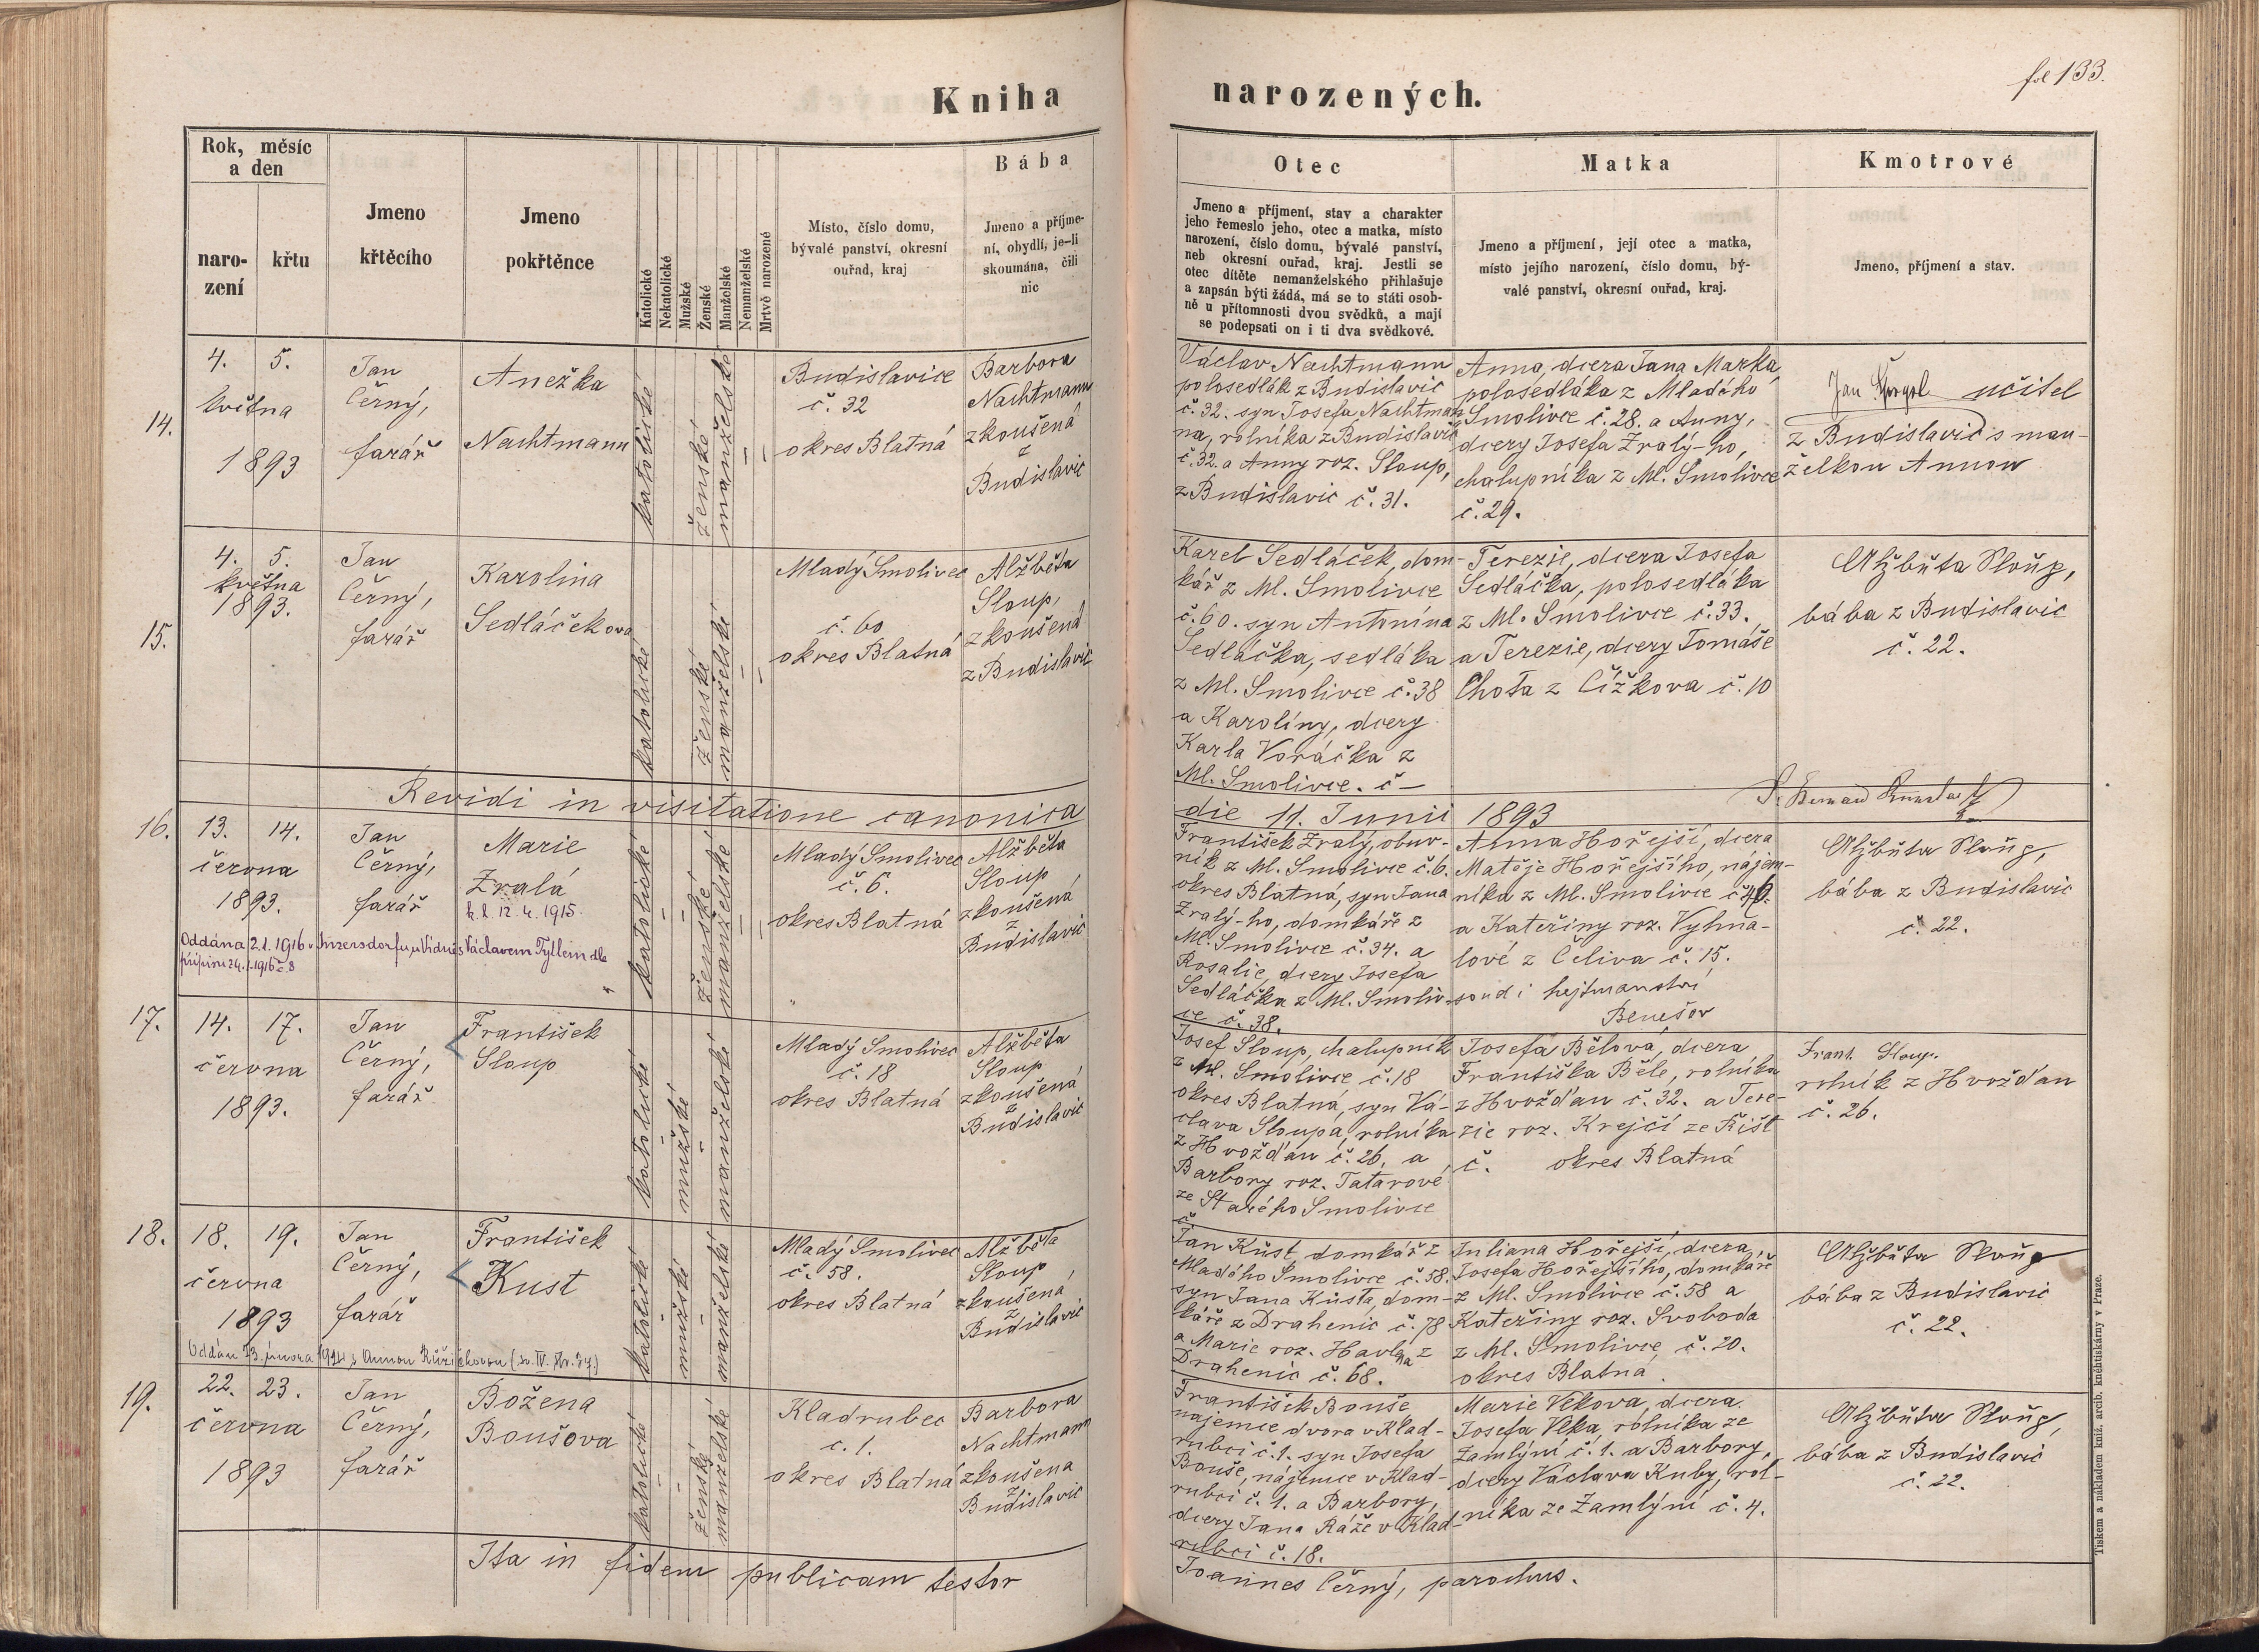 fol 133.
Kniha narozených.
Rok, měsíc
a den
naro-
zení
křtu
Jmeno
křtěcího
Jmeno
pokřtěnce
Katolické
Nekatolické
Mužské
Ženské
Manželské
Nemanželské
Mrtvě narozené
Místo, číslo domu,
bývalé panství, okresní
ouřad, kraj
Bába
Jmeno a příjme-
ní, obydlí, je-li
zkoumána, čili
nic
Otec
Jmeno a příjmení, stav a charakter
jeho řemeslo jeho, otec a matka, místo
narození, číslo domu, bývalé panství,
neb okresní ouřad, kraj. Jestli se
otec dítěte nemanželského přihlašuje
a zapsán býti žádá, má se to státi osob-
ně u přítomnosti dvou svědků, a mají
se podepsati on i ti dva svědkové.
Matka
Jmeno a příjmení, její otec a matka,
místo jejího narození, číslo domu, bý-
valé panství, okresní ouřad, kraj.
Kmotrové
Jmeno, příjmení a stav.
14.
4. 5.
května
1893
Jan
Černý,
farář
Anežka
Nachtmann
katolické
ženské
manželské
Budislavice
č. 32
okres Blatná
Barbora
Nachtmann
zkoušená
z
Budislavic
Václav Nachtmann
polosedlák z Budislavic
č. 32. syn Josefa Nachtman
na, rolníka z Budislavic
č. 32. a Anny roz. Sloup,
z Budislavic č. 31.
Anna, dcera Jana Marka,
polosedláka z Mladého
Smolivce č. 28. a Anny,
dcery Josefa Zralý-ho,
chalupníka z Ml. Smolivce
č. 29.
Jan učitel
z Budislavic s man-
želkou Annou
15.
4. 5.
května
1893.
Jan
Černý,
farář
Karolina
Sedláčkova
katolické
ženské
manželské
Mladý Smolivec
č. 60
okres Blatná
Alžběta
Sloup,
zkoušená
z Budislavic
Karel Sedláček, dom-
kář z Ml. Smolivce
č. 60. syn Antonína
Sedláčka, sedláka
z Ml. Smolivce č. 38
a Karolíny, dcery
Karla Voráčka z
Ml. Smolivce. č –
Terezie, dcera Josefa
Sedláčka, polosedláka
z Ml. Smolivce č. 33.
a Terezie, dcery Tomáše
Chota z Čížkova č. 10
Alžběta Sloup,
bába z Budislavic
č. 22.
Revidi in visitatione canonica die 11. Junii 1893
16.
13. 14.
června
1893.
Jan
Černý,
farář
Marie
Zralá
k. l. 12. 4. 1915.
Oddána 2.1. 1916 v Inzersdorfu u Vídně s Václavem Tyllem dle
přípisu 24.1.1916 č. 8
katolické
ženské
manželské
Mladý Smolivec
č. 6.
okres Blatná
Alžběta
Sloup
zkoušená
z
Budislavic
František Zralý, obuv-
ník z Ml. Smolivce č. 6.
okres Blatná, syn Jana
Zralý-ho, domkáře z
Ml. Smolivce č. 34. a
Rosalie, dcery Josefa
Sedláčka z Ml. Smoliv-
ce č. 38.
Anna Hořejší, dcera
Matěje Hořejšího, nájem-
níka z Ml. Smolivce č. 46.
a Kateřiny roz. Vyhna-
lové z Čeliva č. 15.
soud i hejtmanství
Benešov
Alžběta Sloup,
bába z Budislavic
č. 22.
17.
14. 17.
června
1893.
Jan
Černý,
farář
František
Sloup
katolické
mužské
manželské
Mladý Smolivec
č. 18
okres Blatná
Alžběta
Sloup
zkoušená
z
Budislavic
Josef Sloup, chalupník
z Ml. Smolivce č. 18
okres Blatná, syn Vá-
clava Sloupa, rolníka
z Hvožďan č. 26, a
Barbory roz. Tatarové
ze Starého Smolivce
č.
Josefa Bělová, dcera
Františka Běle, rolníka
z Hvožďan č. 32. a Tere-
zie roz. Krejčí ze Řišt
č. okres Blatná
Frant. Sloup.
rolník z Hvožďan
č. 26.
18.
18. 19.
června
1893
Jan
Černý,
farář
František
Kust
Oddán 13. února 1921 s Annou Růžičkovou (sv. IV. str. 34.)
katolické
mužské
manželské
Mladý Smolivec
č. 58.
okres Blatná
Alžběta
Sloup,
zkoušená
z
Budislavic
Jan Kůst, domkář z
Mladého Smolivce č. 58.
syn Jana Kůsta, dom-
káře z Drahenic č. 78
a Marie roz. Havlna z
Drahenic č. 68.
Juliana Hořejší, dcera
Josefa Hořejšího, domkáře
z Ml. Smolivce č. 58 a
Kateřiny roz. Svoboda
z Ml. Smolivce, č. 20.
okres Blatná.
Alžběta Sloup
bába z Budislavic
č. 22.
19.
22. 23.
června
1893
Jan
Černý,
farář
Božena
Boušova
katolické
ženské
manželské
Kladrubec
č. 1.
okres Blatná
Barbora
Nachtmann
zkoušena
z
Budislavic
František Bouše
nájemce dvora v Klad-
rubci č. 1. syn Josefa
Bouše, nájemce v Klad-
rubci č. 1. a Barbory,
dcery Jana Ráže v Klad-
rubci č. 18.
Marie Vlkova, dcera
Josefa Vlka, rolníka ze
Zamlýní č. 1. a Barbory,
dcery Václava Kuby, rol-
níka ze Zamlýní č. 4.
Alžběta Sloup,
bába z Budislavic
č. 22.
Ita in fidem publicam testor Joannes Černý, parochus.
Tiskem a nákladem kníž. arcib. knihtiskárny v Praze.